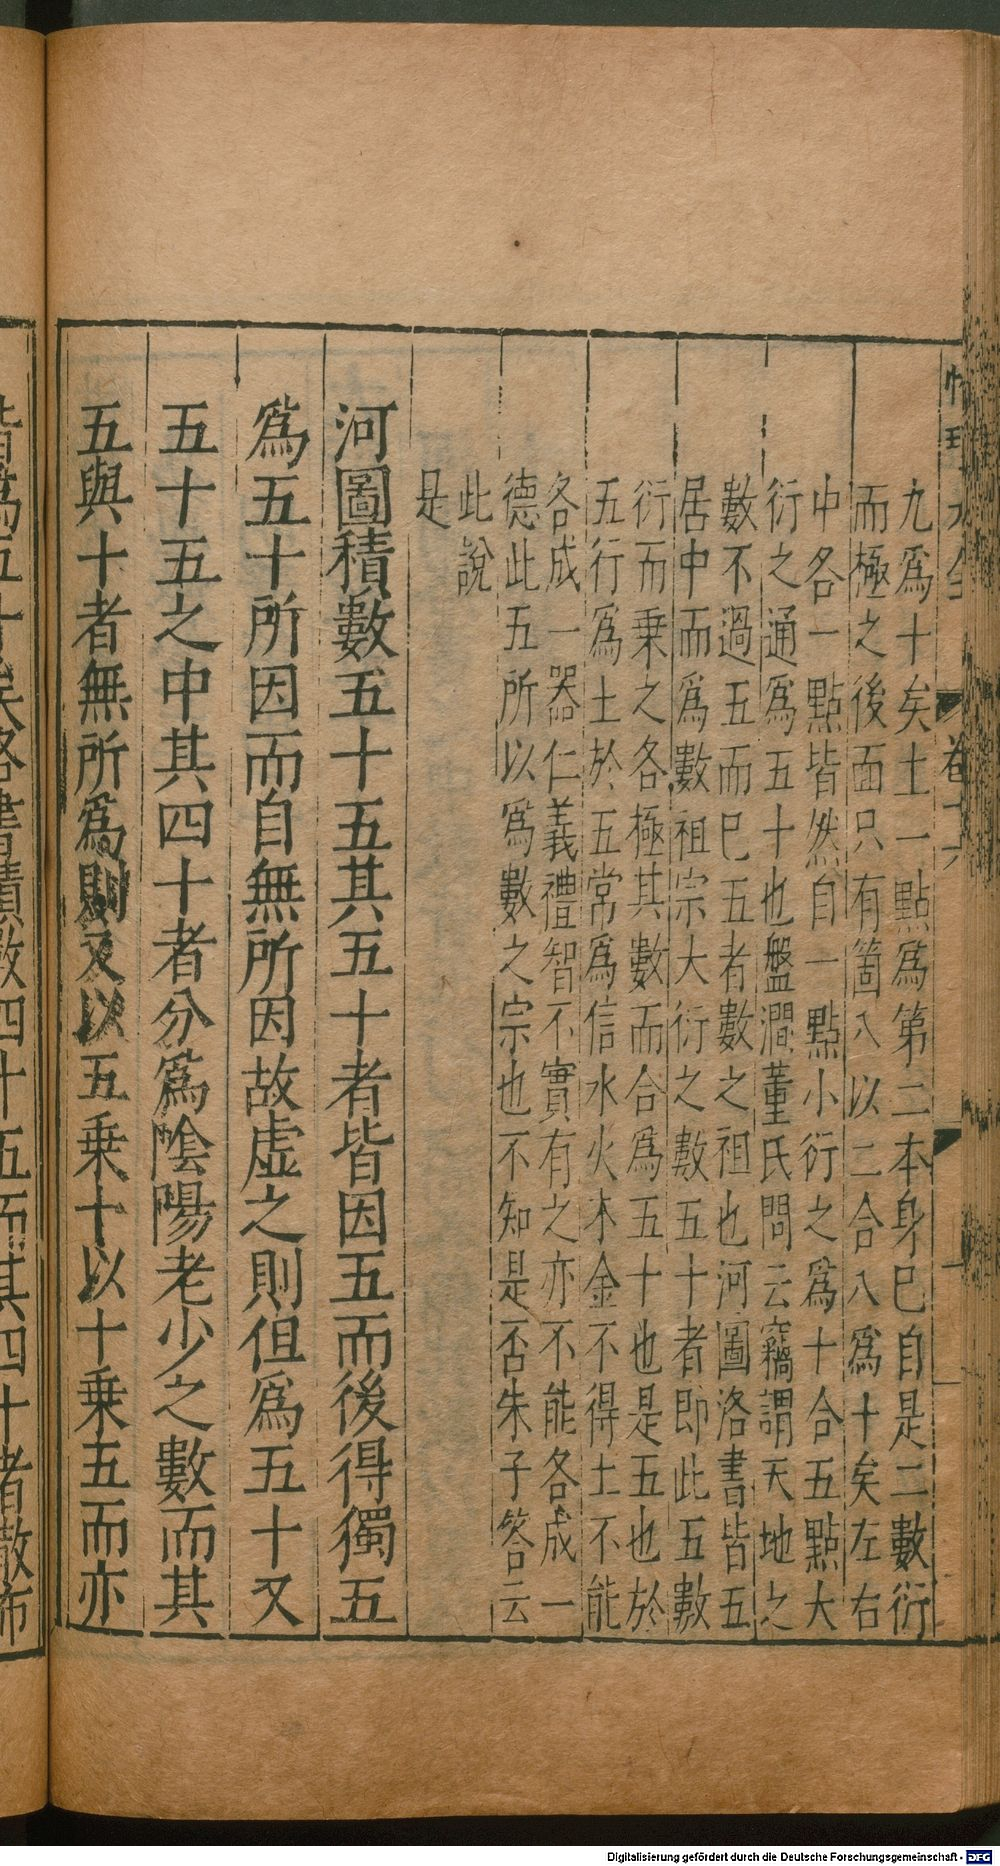 九爲十矣土一點爲第二本身巳自是二數衍
而極之後面只有箇八以二合八爲十矣左右
中各一點皆然自一點小衍之爲十合五點大
衍之通爲五十也盤澗董氏問云竊謂天地之
數不過五而巳五者數之祖也河圖洛書皆五
居中而爲數祖宗大衍之數五十者即此五數
衍而乗之各極其數而合爲五十也是五也於
五行爲土於五常爲信水火木金不得土不能
各成一器仁義禮智不實有之亦不能各成一
德此五所以爲數之宗也不知是否朱子答云
此說
是
河圖積數五十五其五十者皆因五而後得獨五
爲五十所因而自無所因故虛之則但爲五十又
五十五之中其四十者分爲陰陽老少之數而其
五與十者無所爲則又以五乗十以十乗五而亦
皆爲五十矣洛書積數四十五而其四十者散布
卷十六
Digitalisierung gefördert durch die Deutsche Forschungsgemeinschaft - DFG